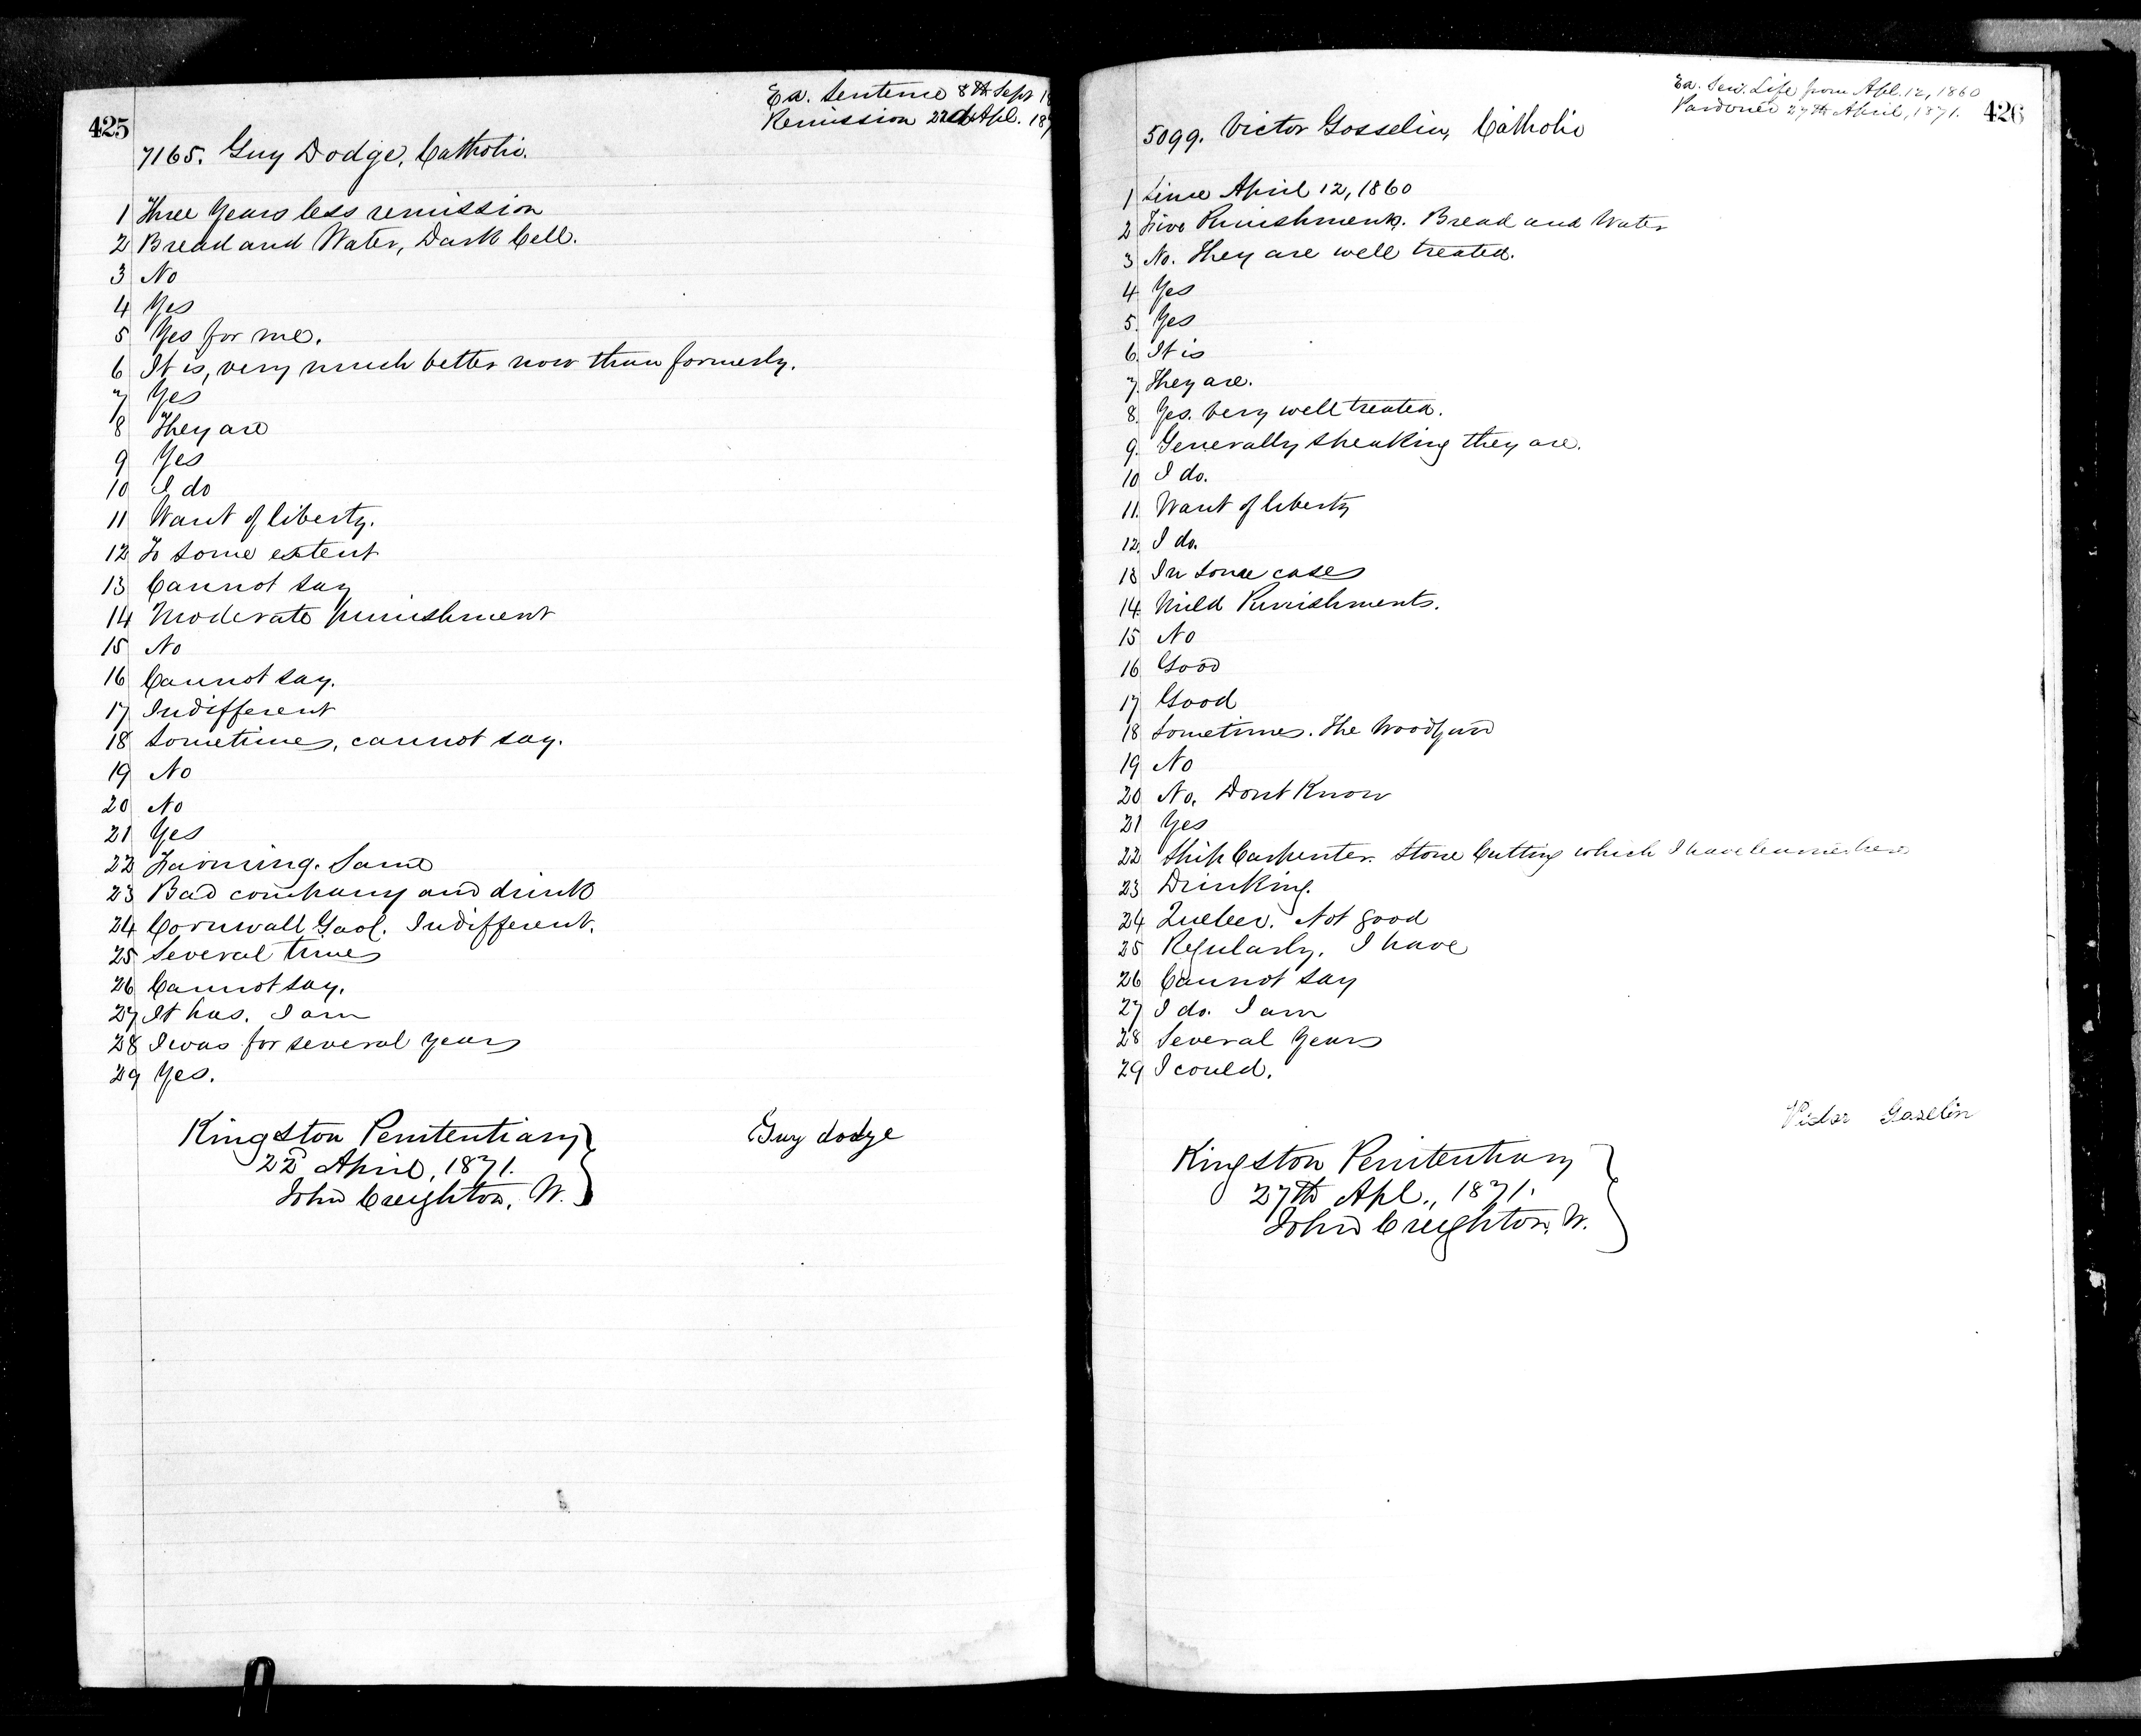 425
Ex. Sentence 8th Sept
Remission 22d Apl.
7165. Guy Dodge, Catholic.
1 Three Years less remission
2 Bread and Water, Dark Cell.
3 No
4 Yes
5 Yes for me.
6 It is, very much better now than formerly.
7 Yes
8 They are
9 Yes
10 I do
11 Want of liberty.
12 To some extent
13 Cannot say
14 Moderate punishment
15 No
16 Cannot say.
17 Indifferent
18 Sometimes, cannot say.
19 No
20 No
21 Yes
22 Farming. Same
23 Bad company and drink
24 Cornwall Gaol. Indifferent.
25 Several times
26 Cannot say.
27 It has. I am
28 I was for several years
29 Yes.
Kingston Penitentiary
22d April, 1871.
John Creighton, W.
Guy dodge
Ex. Sen. Life from Apl. 12, 1860
Pardoned 27th April, 1871.
426
5099. Victor Gosselin, Catholic
1 Since April 12, 1860
2 Five Punishments. Bread and Water
3 No. They are well treated.
4 Yes
5. Yes
6. It is
7. They are.
8. Yes. Very well treated.
9. Generally speaking they are.
10 I do.
11. Want of liberty
12. I do.
13 In some cases
14. Mild Punishments.
15 No
16 Good
17 Good
18 Sometimes. The Woodyard
19 No
20 No. Dont Know
21 Yes
22 Ship Carpenter. Stone Cutting which I have learned here
23 Drinking.
24 Quebec. Not good
25 Regularly. I have
26 Cannot say
27 I do. I am
28 Several Years
29 I could.
Victor Gaselin
Kingston Penitentiary
27th Apl., 1871.
John Creighton, W.